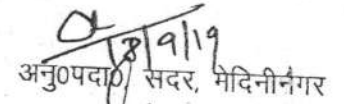 18/9/19
अनु०पदा०, सदर, मेदिनीनगर